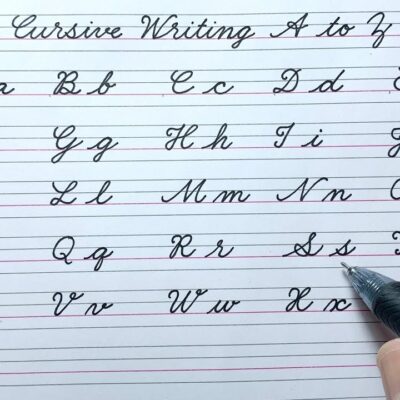 Cursive Writing A to Z
a B b C c D d E
G g H h I i J
L l M m N n O
Q q R r S s T
V v W w X x